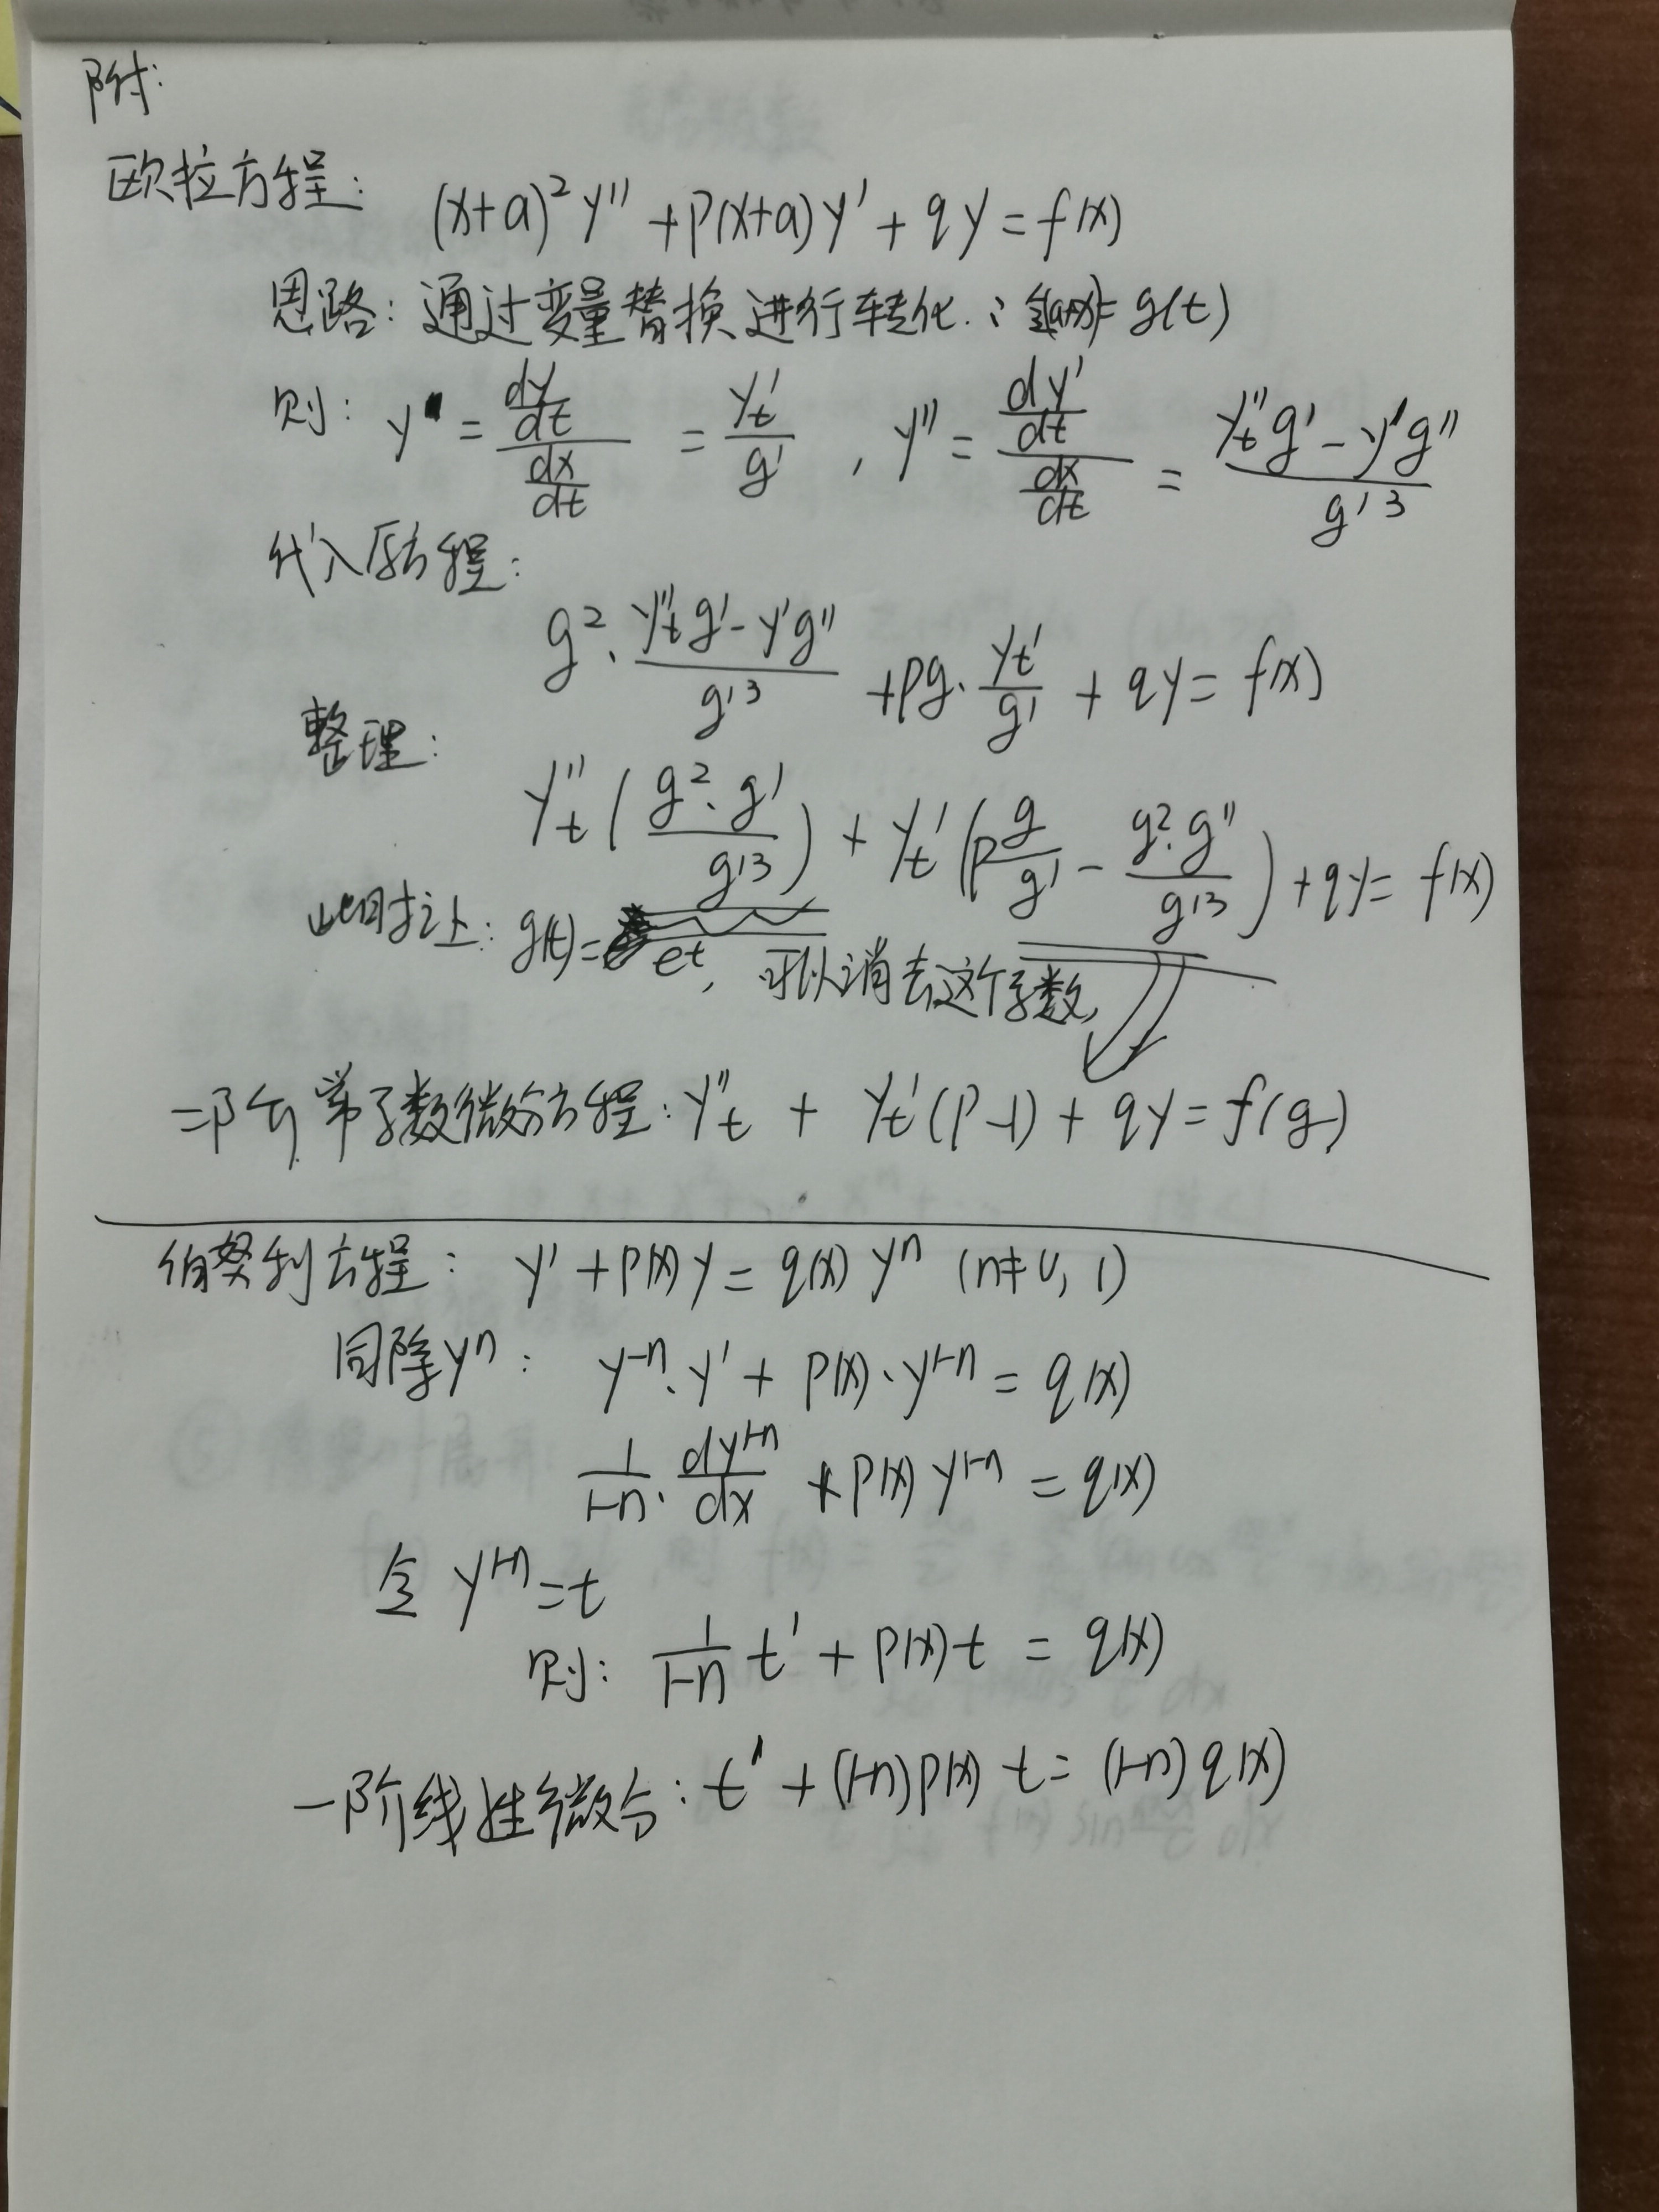 附:
欧拉方程: (x+a)²y'' + p(x+a)y' + qy = f(x)
思路: 通过变量替换进行转化. 令(a+x)= g(t)
则: y' = \frac{\frac{dy}{dt}}{\frac{dx}{dt}} = \frac{y_t'}{g'} , y'' = \frac{\frac{dy'}{dt}}{\frac{dx}{dt}} = \frac{y_t''g' - y'g''}{g'^3}
代入原方程:
g² · \frac{y_t''g' - y'g''}{g'^3} + pg · \frac{y_t'}{g'} + qy = f(x)
整理:
y_t''(\frac{g²·g'}{g'^3}) + y_t'(p\frac{g}{g'} - \frac{g²·g''}{g'^3}) + qy = f(x)
此时让: g(t)= e^t, 可以消去这个系数,
二阶 常系数微分方程: y_t'' + y_t'(p-1) + qy = f(g)
伯努利方程: y' + p(x)y = q(x) y^n (n≠0, 1)
同除y^n: y^{-n}·y' + p(x)·y^{1-n} = q(x)
\frac{1}{1-n}·\frac{dy^{1-n}}{dx} + p(x) y^{1-n} = q(x)
令 y^{1-n} = t
则: \frac{1}{1-n} t' + p(x)t = q(x)
一阶线性微分: t' + (1-n)p(x) t = (1-n) q(x)